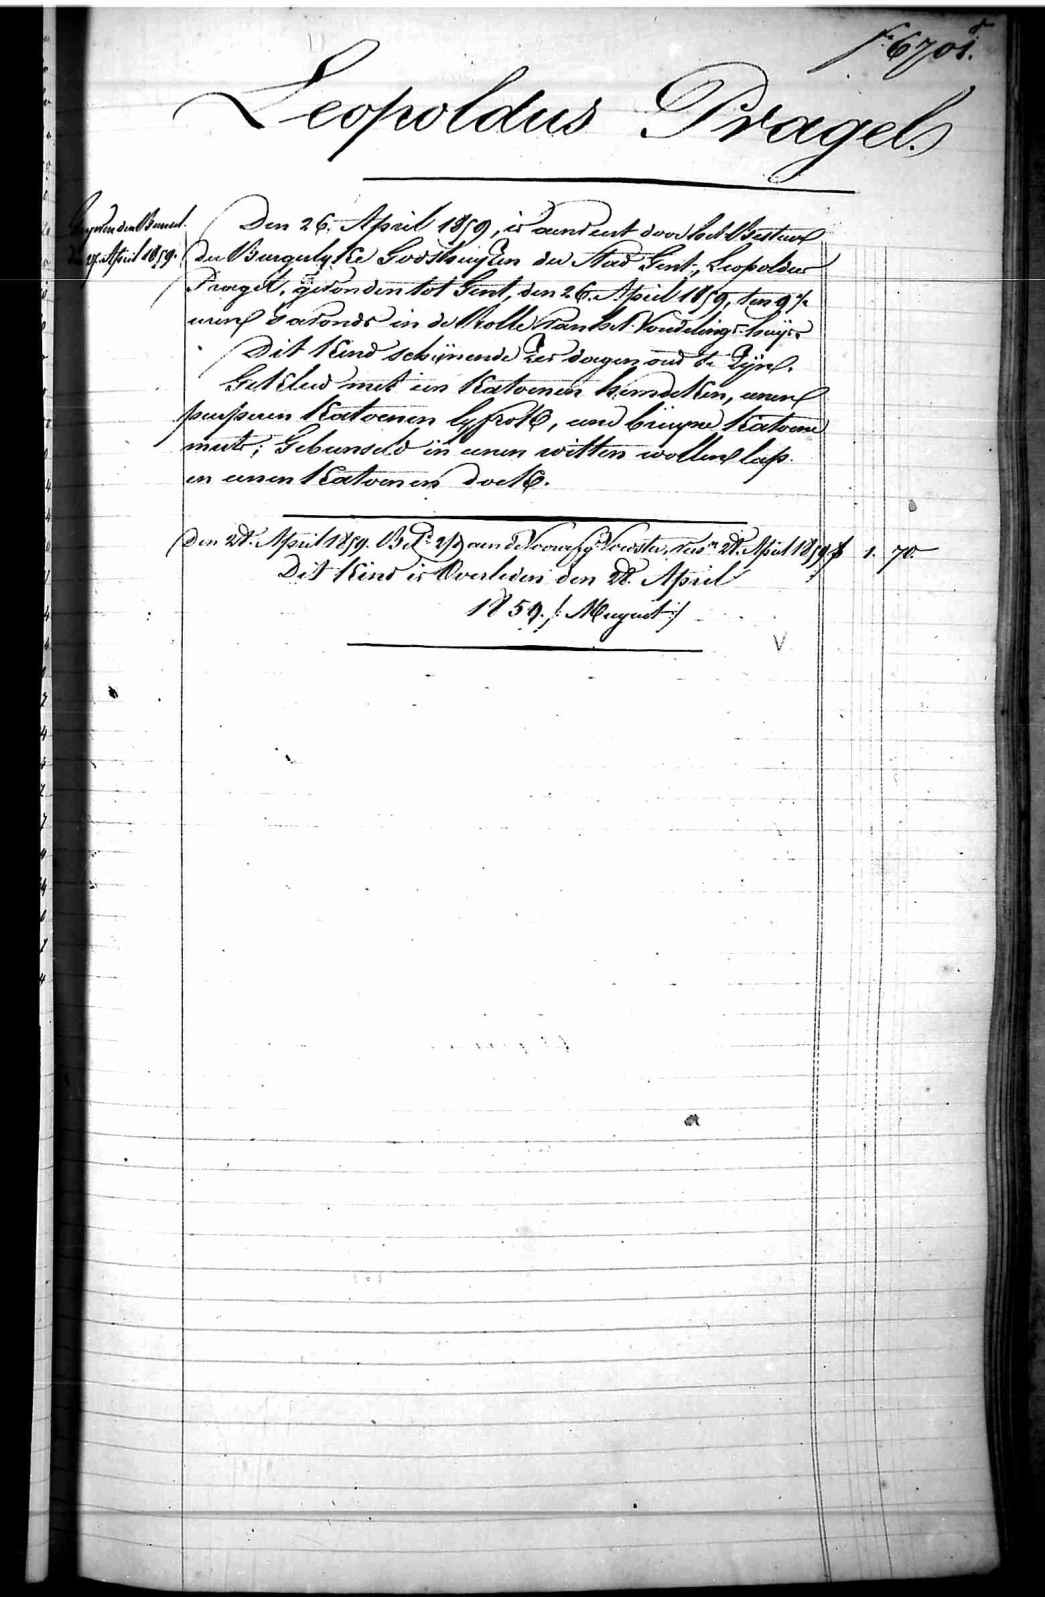 f° 6701.
Leopoldus Pragel.
den 27 April 1859.
Den 26. April 1859, is aenveert door het Bestuer
der Burgerlyke Godshuyzen der Stad Gent, Leopoldus
Pragel, gevonden tot Gent, den 26. April 1859, ten 9½
uren s'avonds in de Rolle van het Vondelings-huys
Dit Kind schynende zes dagen oud te zyn.
Gekleed met een Katoenen hemdeken, eenen
purperen Katoenen lyfrok, eene bruyne Katoene
muts; Gebunseld in eenen witten wollen lap
en eenen Katoenen doek.
den 28. April 1859. Bet. aen de Voedster, 28. April 1859 f 1. 70
Dit Kind is Overleden den 28. April
1859. /: Meyunt :/
V